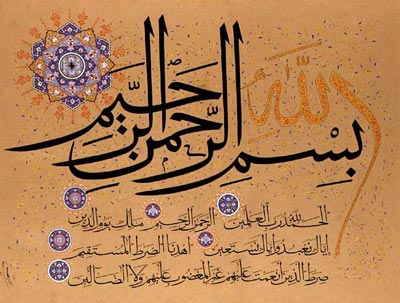 بسم الله الرحمن الرحيم
الحمد لله رب العالمين الرحمن الرحيم ملك يوم الدين
اياك نعبد واياك نستعين اهدنا الصرط المستقيم
صرط الذين انعمت عليهم غير المغضوب عليهم ولا الضالين